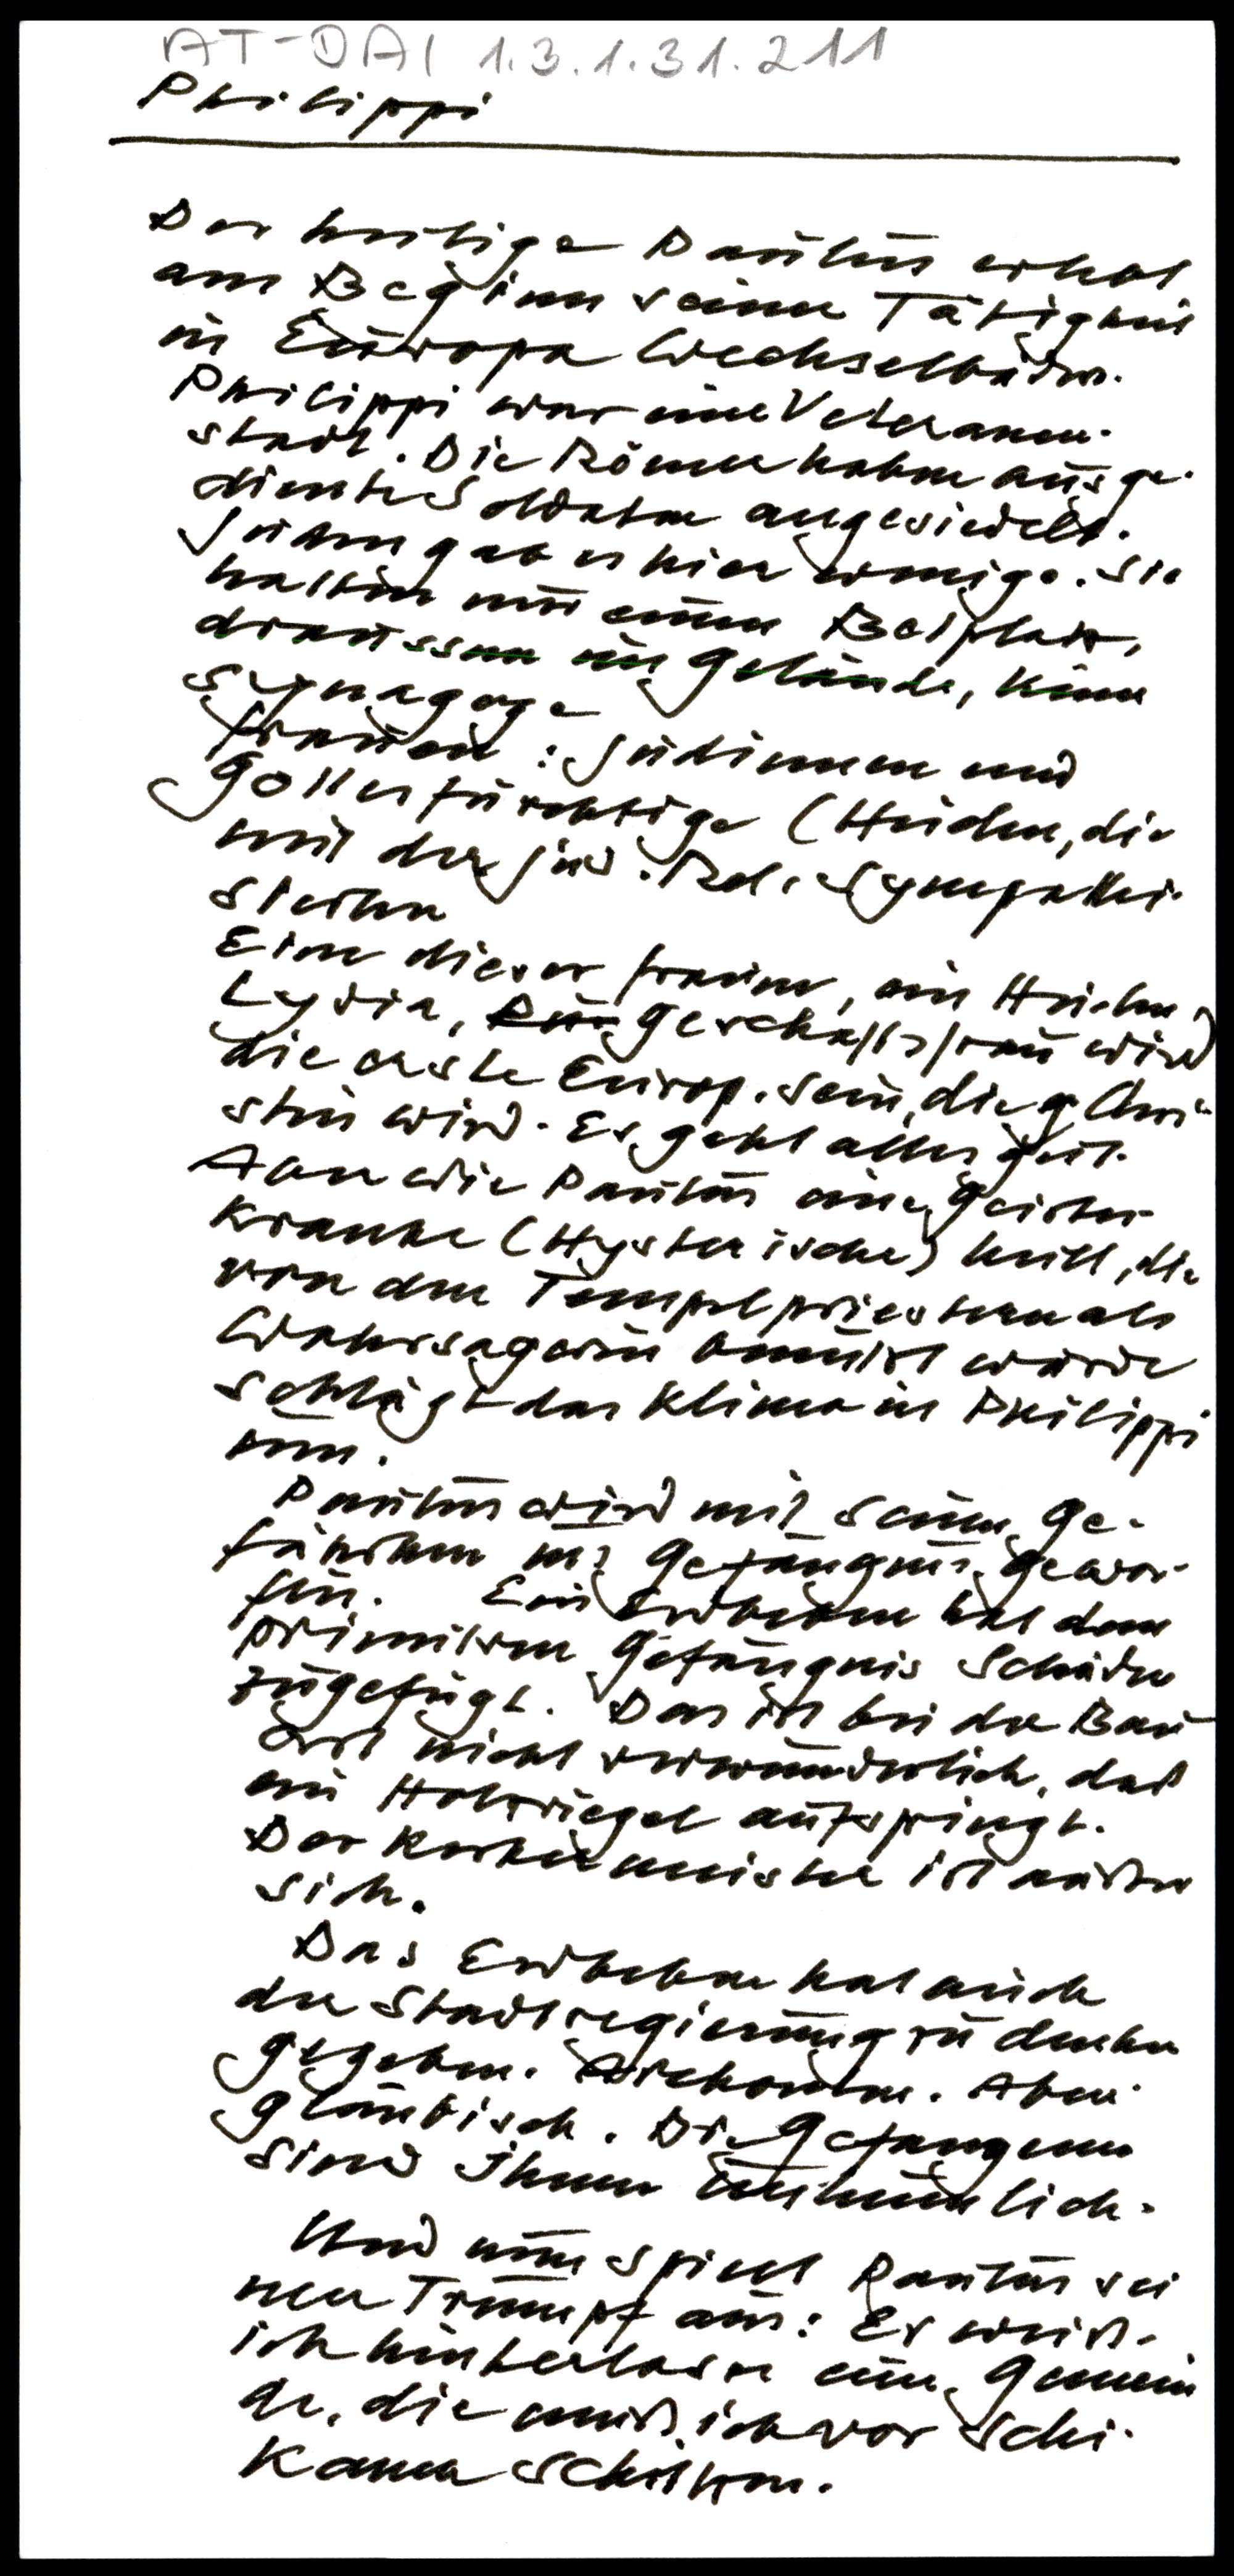 AT-DAI 1.3.1.31.211
Philippi
Der heilige Paulus erhält
am Beginn seiner Tätigkeit
in Europa Wechselbäder.
Philippi war eine Veteranen-
stadt. Die Römer haben ausge-
diente Soldaten angesiedelt.
Juden gab es hier wenige. Sie
hatten nur einen Betplatz,
draussen im Gelände, keine
Synagoge
Frauen: Jüdinnen und
Gottesfürchtige (Heiden, die
mit der jüd. Rel. sympathi-
sierten
Eine dieser Frauen, ein Heidin,
Lydia, Geschäftsfrau wird
die erste Europ. sein, die Chri-
stin wird. Es geht alles gut.
Aber wie Paulus eine Geistes-
kranke (Hysterische) heilt, die
von den Tempelpriestern als
Wahrsagerin benützt wurde
schlägt das Klima in Philippi
um.
Paulus wird mit seinen Ge-
fährten ins Gefängnis gewor-
fen. Ein Erdbeben hat dem
primitiven Gefängnis Schäden
zugefügt. Das ist bei der Bau
art nicht verwunderlich, daß
ein Holzriegel aufspringt.
Der Kerkermeister ist außer
sich.
Das Erdbeben hat auch
der Stadtregierung zu denken
gegeben. Abergläubisch
gläubisch. Die Gefangenen
sind ihnen unheimlich.
Und nun spielt Paulus sei
nen Trumpf aus: Er weiß.
ich hinterlasse eine Gemein
de, die muß ich vor Schi-
kanen schützen.